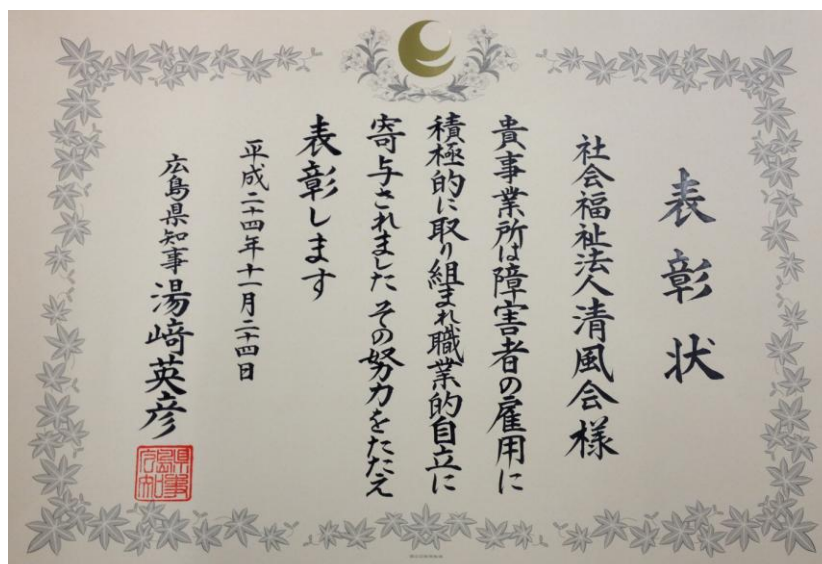 表彰状
社会福祉法人清風会様
貴事業所は障害者の雇用に
積極的に取り組まれ職業的自立に
寄与されました その努力をたたえ
表彰します
平成二十四年十一月二十四日
広島県知事 湯﨑英彦